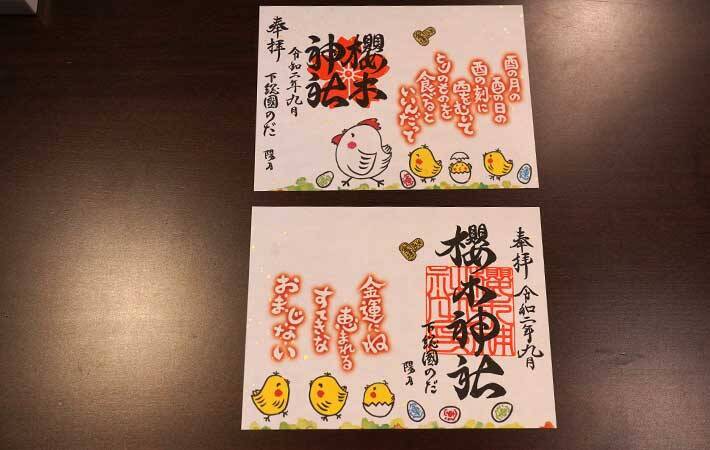 酉の月の
酉の日の
酉の刻に
酉をむいて
とりのものを
食べると
いいんだって
櫻木
神社
令和二年九月
奉拝
下総國のだ
奉拝
令和二年九月
櫻木神社
下総國のだ
金運にね
恵まれる
すてきな
おまじない